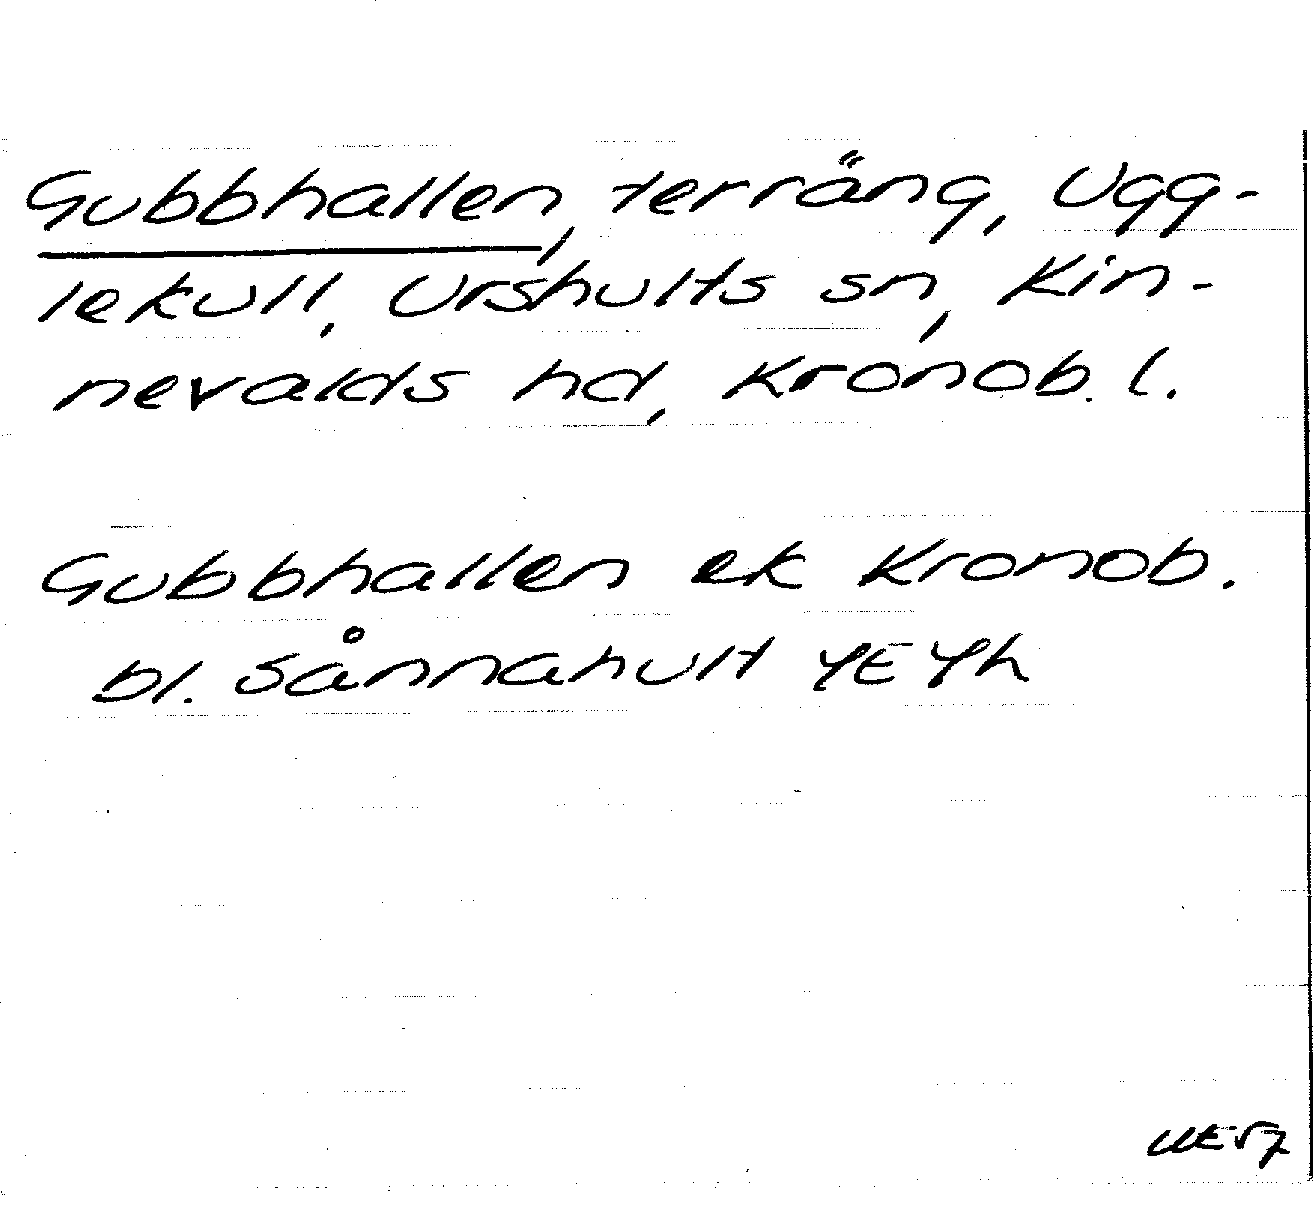 Gubbhallen, terräng, Ugg-
lekull, Urshults sn, Kin-
nevalds hd, Kronob. l.
Gubbhallen ek Kronob.
bl. Sånnahult 4E4h